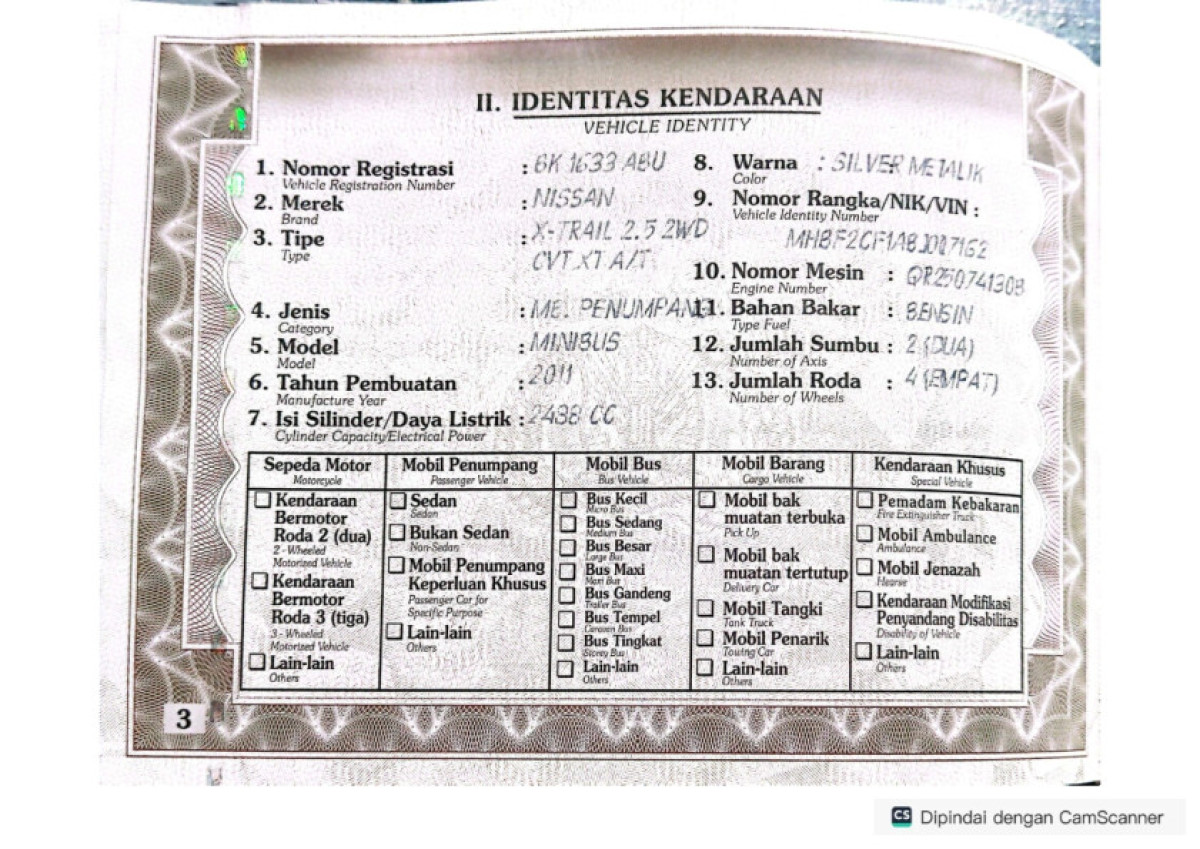 II. IDENTITAS KENDARAAN
VEHICLE IDENTITY
1. Nomor Registrasi : BK 1633 ABU
Vehicle Registration Number
2. Merek : NISSAN
Brand
3. Tipe : X-TRAIL 2.5 2WD
Type
CVT XT A/T
4. Jenis : MB. PENUMPANG
Category
5. Model : MINIBUS
Model
6. Tahun Pembuatan : 2011
Manufacture Year
7. Isi Silinder/Daya Listrik : 2488 CC
Cylinder Capacity/Electrical Power
8. Warna : SILVER METALIK
Color
9. Nomor Rangka/NIK/VIN :
Vehicle Identity Number
10. Nomor Mesin :
Engine Number
11. Bahan Bakar : BENSIN
Type Fuel
12. Jumlah Sumbu : 2 (DUA)
Number of Axis
13. Jumlah Roda : 4 (EMPAT)
Number of Wheels
Sepeda Motor
Motorcycle
Kendaraan
Bermotor
Roda 2 (dua)
2 - Wheeled
Motorized Vehicle
Kendaraan
Bermotor
Roda 3 (tiga)
3 - Wheeled
Motorized Vehicle
Lain-lain
Others
Mobil Penumpang
Passenger Vehicle
Sedan
Sedan
Bukan Sedan
Non-Sedan
Mobil Penumpang
Keperluan Khusus
Passenger Car for
Specific Purpose
Lain-lain
Others
Mobil Bus
Bus Vehicle
Bus Kecil
Micro Bus
Bus Sedang
Medium Bus
Bus Besar
Large Bus
Bus Maxi
Maxi Bus
Bus Gandeng
Trailer Bus
Bus Tempel
Caravan Bus
Bus Tingkat
Storey Bus
Lain-lain
Others
Mobil Barang
Cargo Vehicle
Mobil bak
muatan terbuka
Pick Up
Mobil bak
muatan tertutup
Delivery Car
Mobil Tangki
Tank Truck
Mobil Penarik
Touing Car
Lain-lain
Others
Kendaraan Khusus
Special Vehicle
Pemadam Kebakaran
Fire Extinguisher Truck
Mobil Ambulance
Ambulance
Mobil Jenazah
Hearse
Kendaraan Modifikasi
Penyandang Disabilitas
Disability of Vehicle
Lain-lain
Others
3
CS Dipindai dengan CamScanner